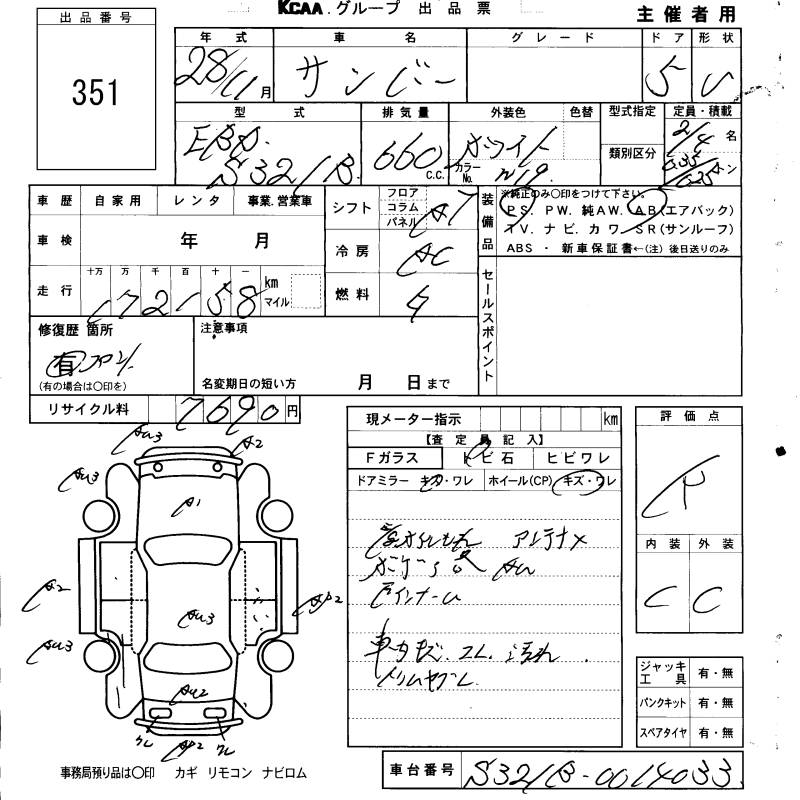 KCAA.グループ 出品票
主催者用
出品番号
351
年式 車名 グレード ドア 形状
28/11月 サンバー 5 V
型式 排気量 外装色 色替 型式指定 定員・積載
EBD
S321B 660 C.C. ホワイト カラーNo. W19 類別区分 2/4名
車歴 自家用 レンタ 事業.営業車
シフト フロア コラム パネル AT
装備品 ※純正のみ〇印をつけて下さい。
PS. PW. 純AW. AB(エアバック)
TV. ナビ. カワ. SR(サンルーフ)
ABS ・ 新車保証書←(注) 後日送りのみ
車検 年 月
冷房 AC
走行 十万 万 千 百 十 一
172158 km マイル
燃料
セールスポイント
修復歴 箇所
有
(有の場合は〇印を)
注意事項
名変期日の短い方 月 日まで
リサイクル料 7690円
現メーター指示 km
【査定員記入】
Fガラス トビ石 ヒビワレ
ドアミラー キズ・ワレ ホイール(CP) キズ・ワレ
アンテナ×
評価点
R
内装 外装
C C
AU3 A2
AU3 AU3
A1
A2 AU3
AU3 AU3
AU2
ワレ ワレ
ジャッキ工具 有・無
パンクキット 有・無
スペアタイヤ 有・無
事務局預り品は〇印 カギ リモコン ナビロム
車台番号 S321B-0014033